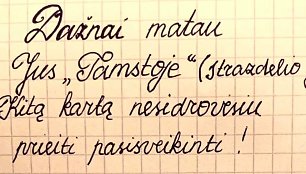 Dažnai matau
Jus „Tamstoje“ (Strazdelio)
Kitą kartą nesidrovėsiu
prieiti pasisveikinti!